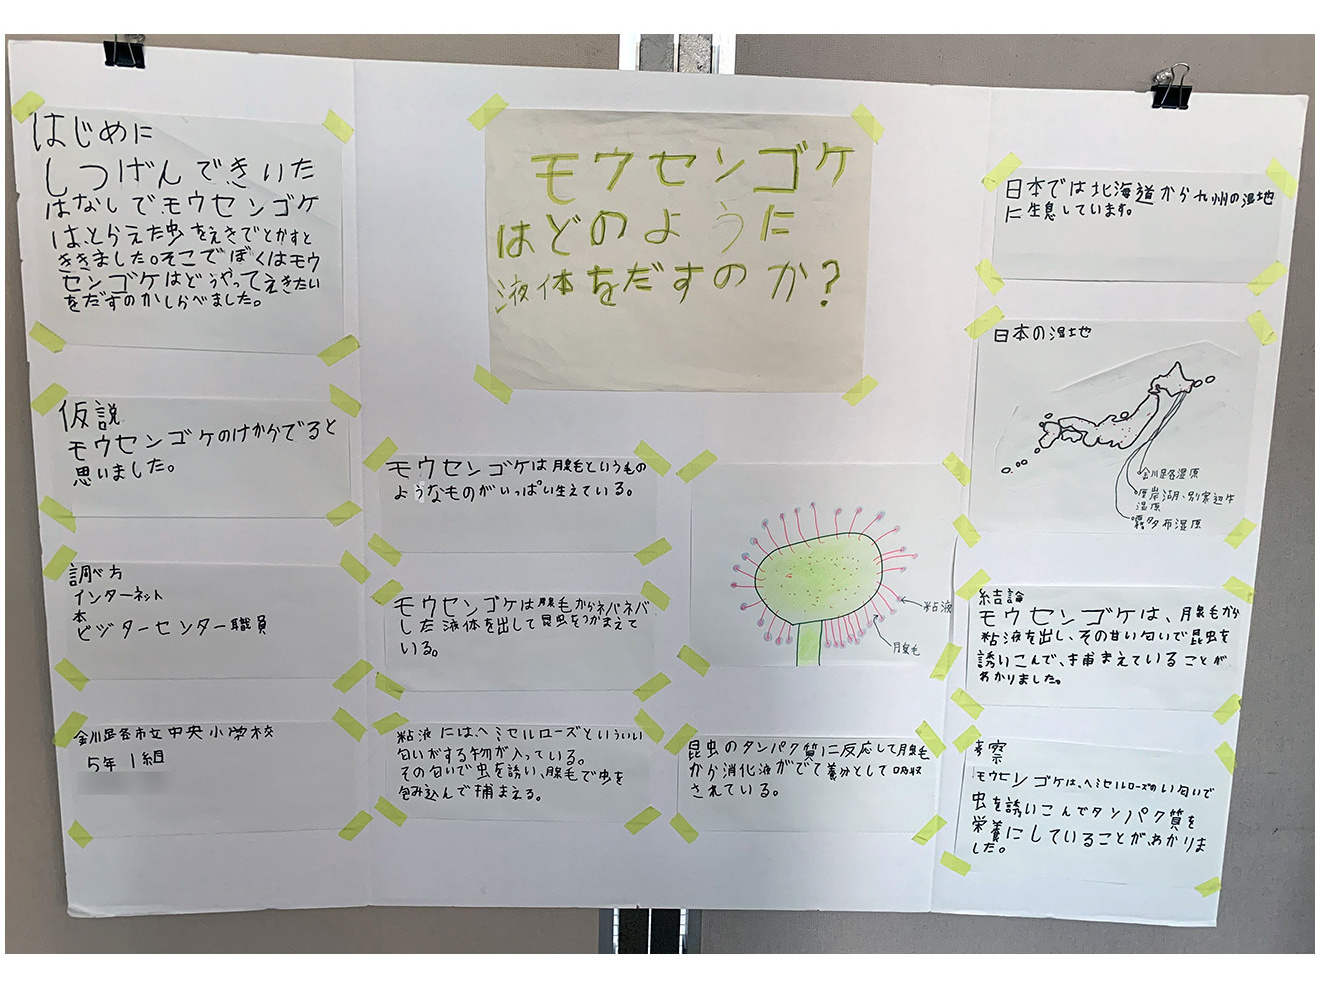 はじめに
しつげんできいた
はなしでモウセンゴケ
は、とらえた虫をえきでとかすと
ききました。そこでぼくはモウ
センゴケはどうやってえきたい
をだすのかしらべました。
仮説
モウセンゴケのけからでると
思いました。
調べ方
インターネット
本
ビジターセンター職員
釧路市立中央小学校
5年1組
モウセンゴケ
はどのように
液体をだすのか?
モウセンゴケは腺毛という毛の
ようなものがいっぱい生えている。
モウセンゴケは腺毛からネバネバ
した液体を出して昆虫をつかまえて
いる。
粘液にはヘミセルローズといういい
匂いがする物が入っている。
その匂いで虫を誘い、腺毛で虫を
包み込んで捕まえる。
粘液
腺毛
昆虫のタンパク質に反応して腺毛
から消化液がでて養分として吸収
されている。
日本では北海道から九州の湿地
に生息しています。
日本の湿地
釧路湿原
厚岸湖、別寒辺牛
湿原
霧多布湿原
結論
モウセンゴケは、腺毛から
粘液を出し、その甘い匂いで昆虫を
誘いこんで、捕まえていることが
わかりました。
考察
モウセンゴケは、ヘミセルローズのいい匂いで
虫を誘いこんでタンパク質を
栄養にしていることが、わかりま
した。